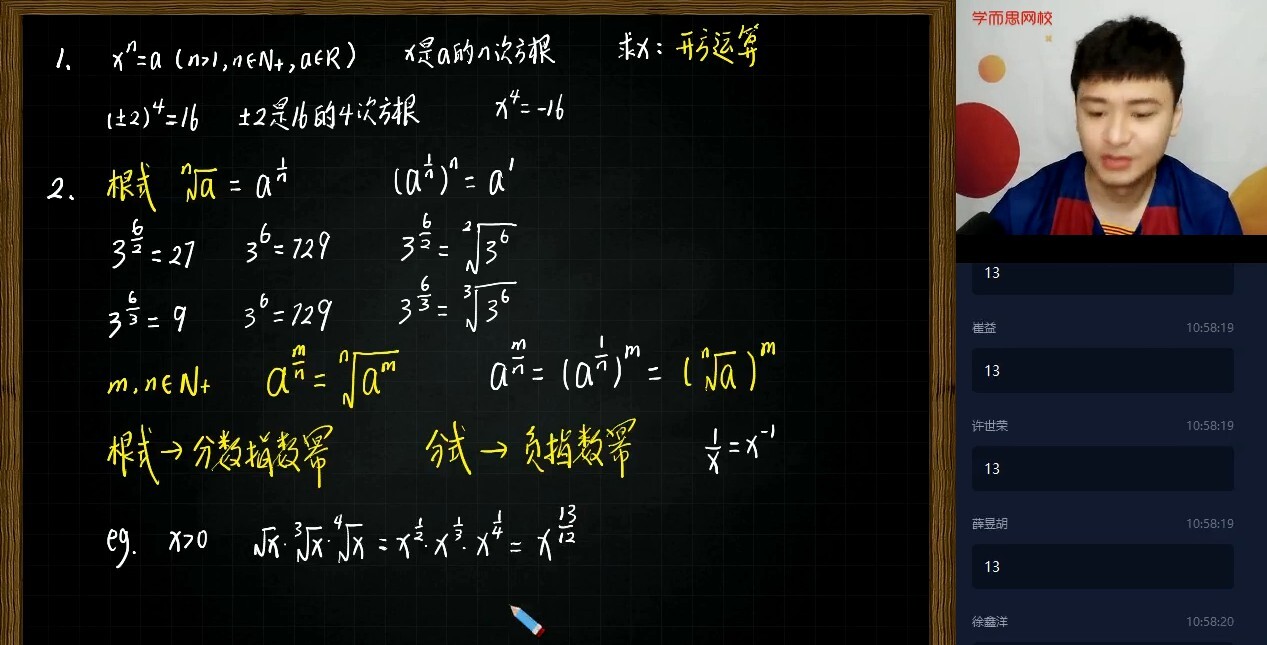 1. xⁿ=a (n>1, n∈N₊, a∈R) x是a的n次方根 求x：开方运算
(±2)⁴=16 ±2是16的4次方根 x⁴=-16
2. 根式 ⁿ√a = a^(1/n) (a^(1/n))ⁿ = a¹
3^(6/2) = 27 3⁶ = 729 3^(6/2) = ²√(3⁶)
3^(6/3) = 9 3⁶ = 729 3^(6/3) = ³√(3⁶)
m,n∈N₊ a^(m/n) = ⁿ√(a^m) a^(m/n) = (a^(1/n))^m = (ⁿ√a)^m
根式→分数指数幂 分式→负指数幂 1/x = x⁻¹
eg. x>0 √x·³√x·⁴√x = x^(1/2)·x^(1/3)·x^(1/4) = x^(13/12)
学而思网校
13
崔益 10:58:19
13
许世荣 10:58:19
13
薛昱胡 10:58:19
13
徐鑫洋 10:58:20